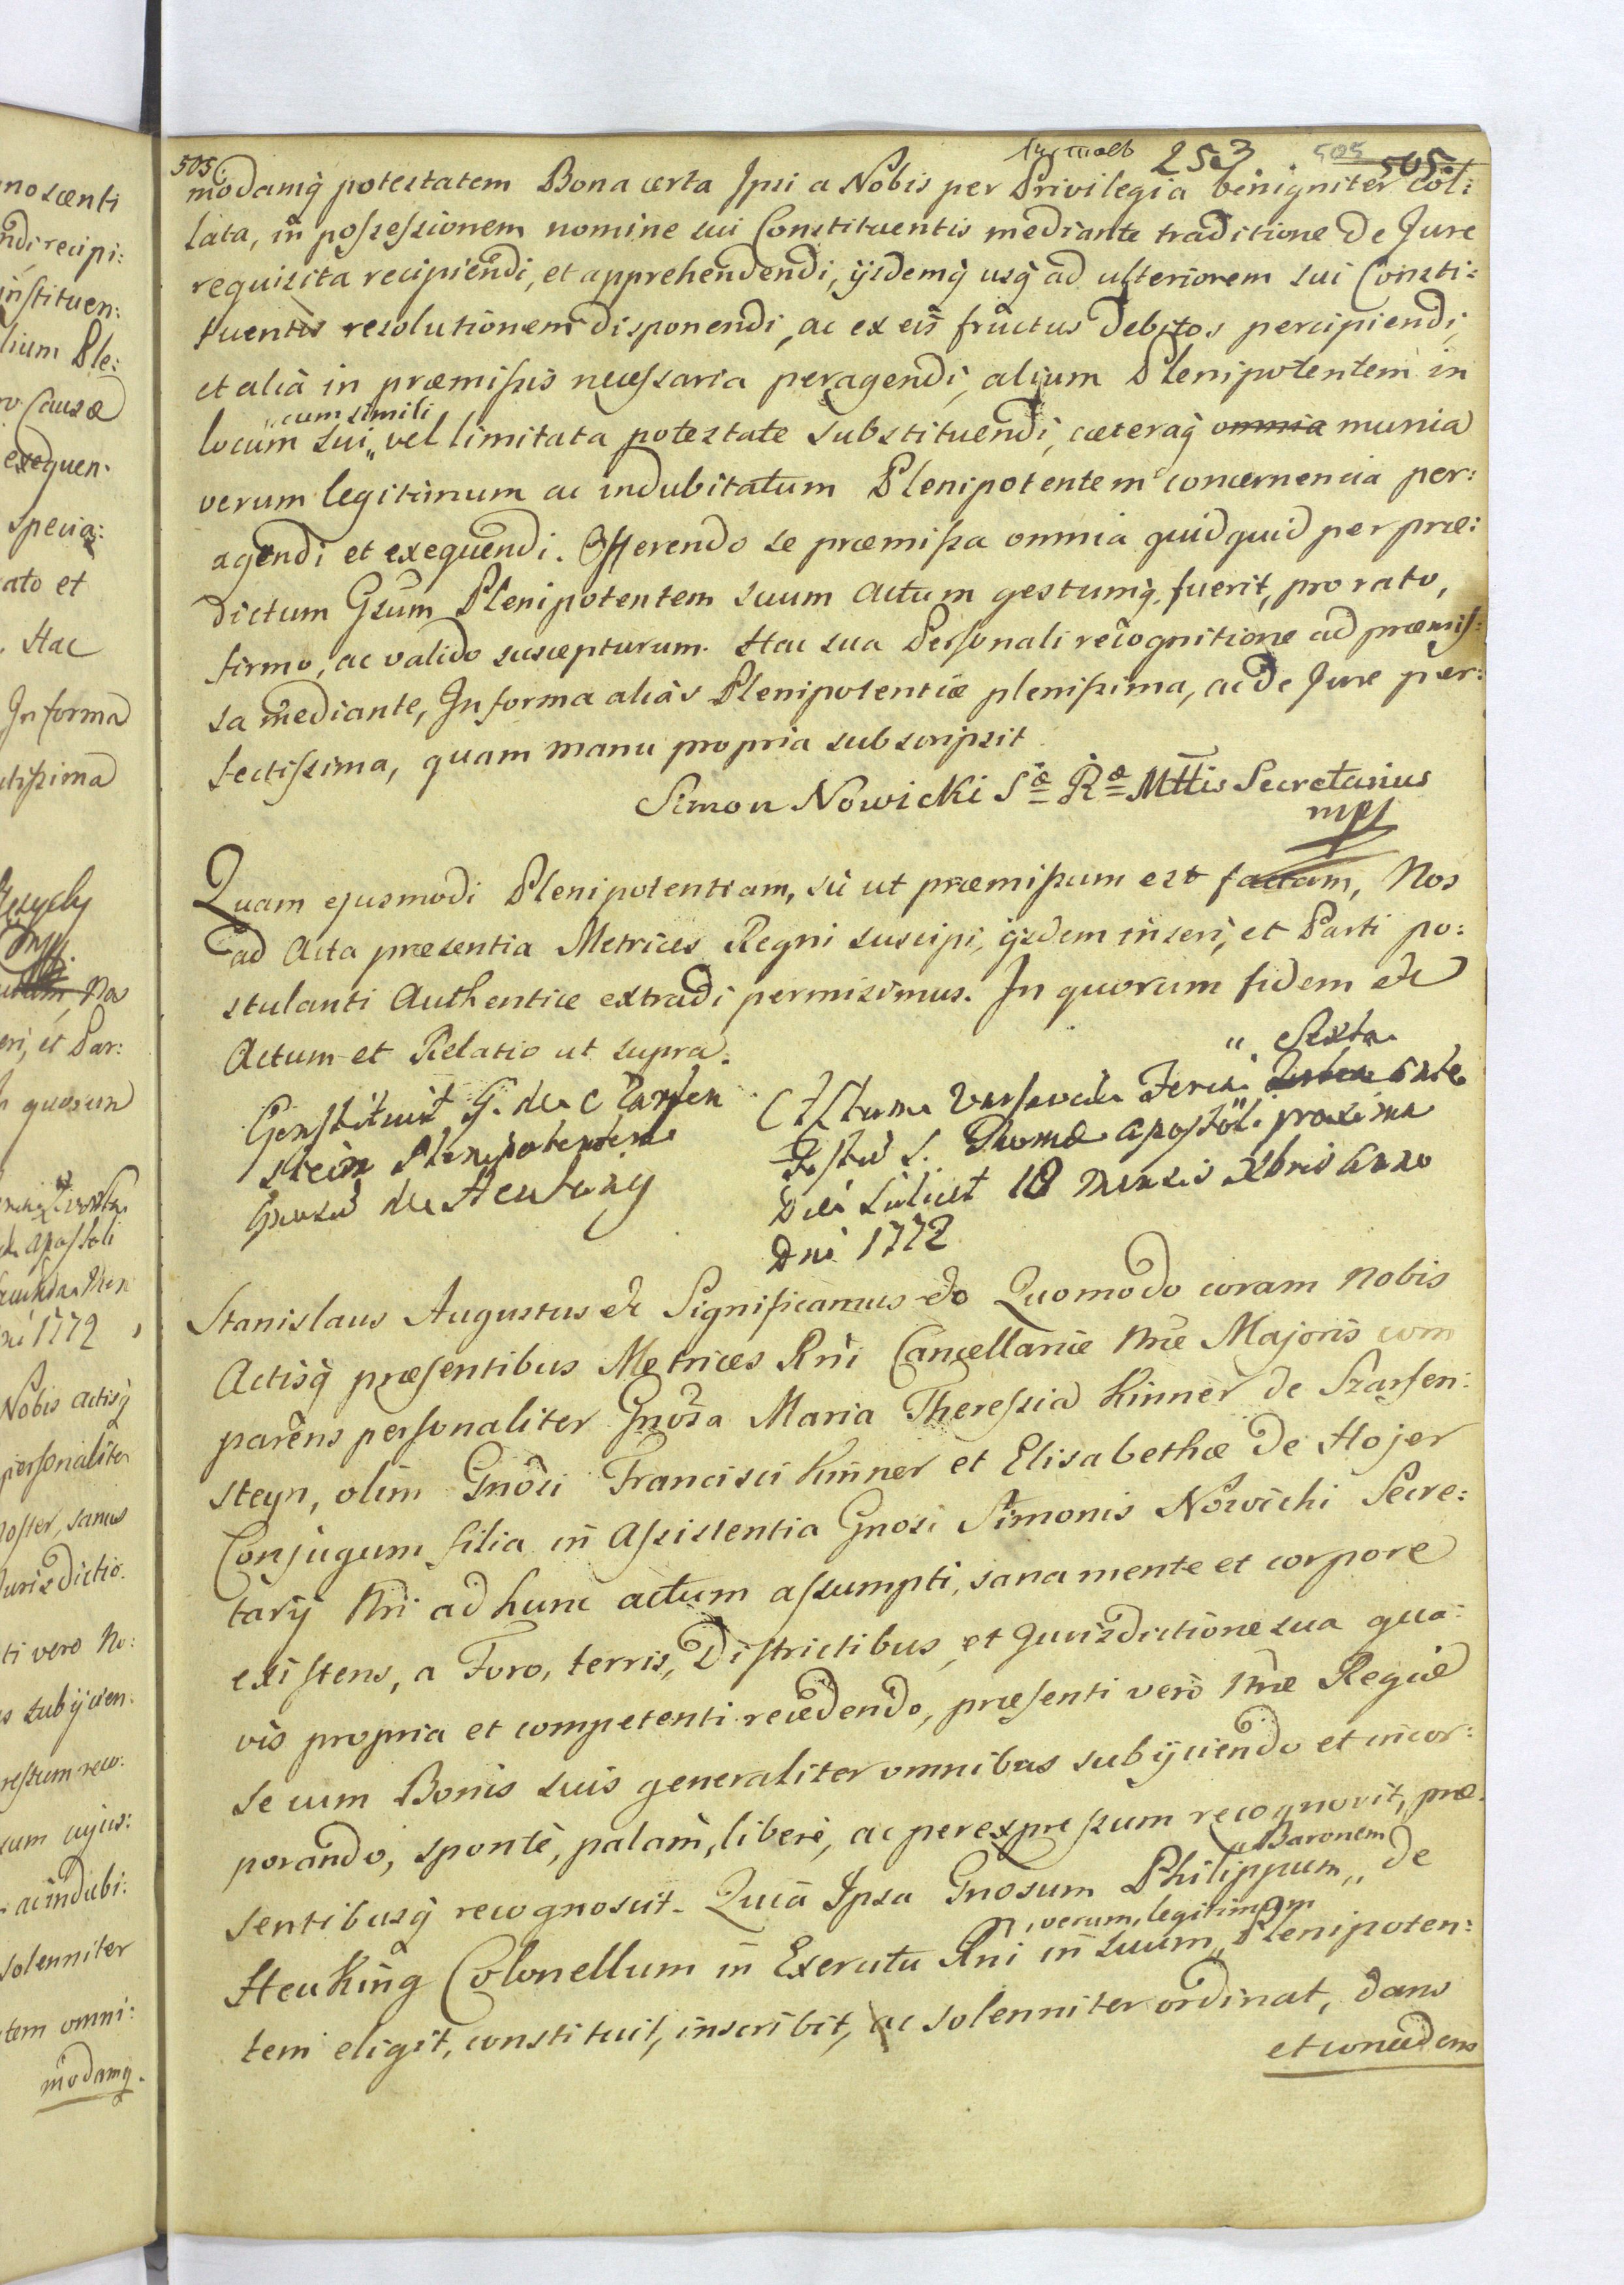 505
253
505
505
modamq̃ potestatem Bona certa Ipsi a Nobis per Privilegia benigniter col:
lata, in possessionem nomine sui Constituentis mediante traditione de Jure
requisita recipiendi, et apprehendendi, ijsdemq̃ usq̃ ad ulteriorem sui Consti:
tuentis resolutionem disponendi, ac ex eis fructus debitos percipiendi,
et alia in præmissis necessaria peragendi, alium Plenipotentem in
„cum simili
locum sui „ vel limitata potestate substituendi, cæteraq̃ omnia munia
verum legitimum ac indubitatum Plenipotentem concernencia per:
agendi et exequendi. Offerendo se præmissa omnia quidquid per præ:
dictum Gsum Plenipotentem suum actum gestumq̃ fuerit, pro rato,
firmo, ac valido suscepturum. Hac sua Personali recognitione ad præmis:
sa mediante, In forma alias Plenipotentiæ plenissima, ac de Jure per:
fectissima, quam manu propria subscripsit
Simon Nowicki Sæ Ræ Mttis Secretarius
mpp
Quam ejusmodi Plenipotentiam, sic ut præmissum est factam, Nos
ad Acta præsentia Metrices Regni suscipi, ijsdem inseri, et Parti po:
stulanti Authentice extradi permisimus. In quorum fidem &c
Actum et Relatio ut supra.
Constituit G. de Czarfen
stein Plenipotentem
Gnosū de Heuking
„ Sexta
Actum Varsaviæ Feria ante
Festū S. Thomæ Apostoli proxima
Die scilicet 18 Mensis Xbris Anno
Dni 1772
Stanislaus Augustus &c Significamus &c Quomodo coram Nobis
Actisq̃ præsentibus Metrices Rni Cancellariæ Nræ Majoris com
parens personaliter Gnosa Maria Theressia Kinner de Szarfen:
steyn, olim Gnosi Francisci Kinner et Elisabethæ de Hojer
Conjugum filia in Assistentia Gnosi Simonis Nowicki Secre:
tarij Nri ad hunc actum assumpti, sana mente et corpore
existens, a Foro, terris, Districtibus, et Jurisdictione sua qua:
vis propria et competenti recedendo, præsenti vero Nræ Regiæ
se cum Bonis suis generaliter omnibus subijciendo et incor:
porando, sponte, palam, libere, ac per expressum recognovit, præ:
sentibusq̃ recognoscit. Quia Ipsa Gnosum Philippum „ de
„Baronem
Heuking Colonellum in Exercitu Rni in suum „ Plenipoten:
„verum, legitimum
tem eligit, constituit, inscribit, ac solenniter ordinat, dans
et concedens